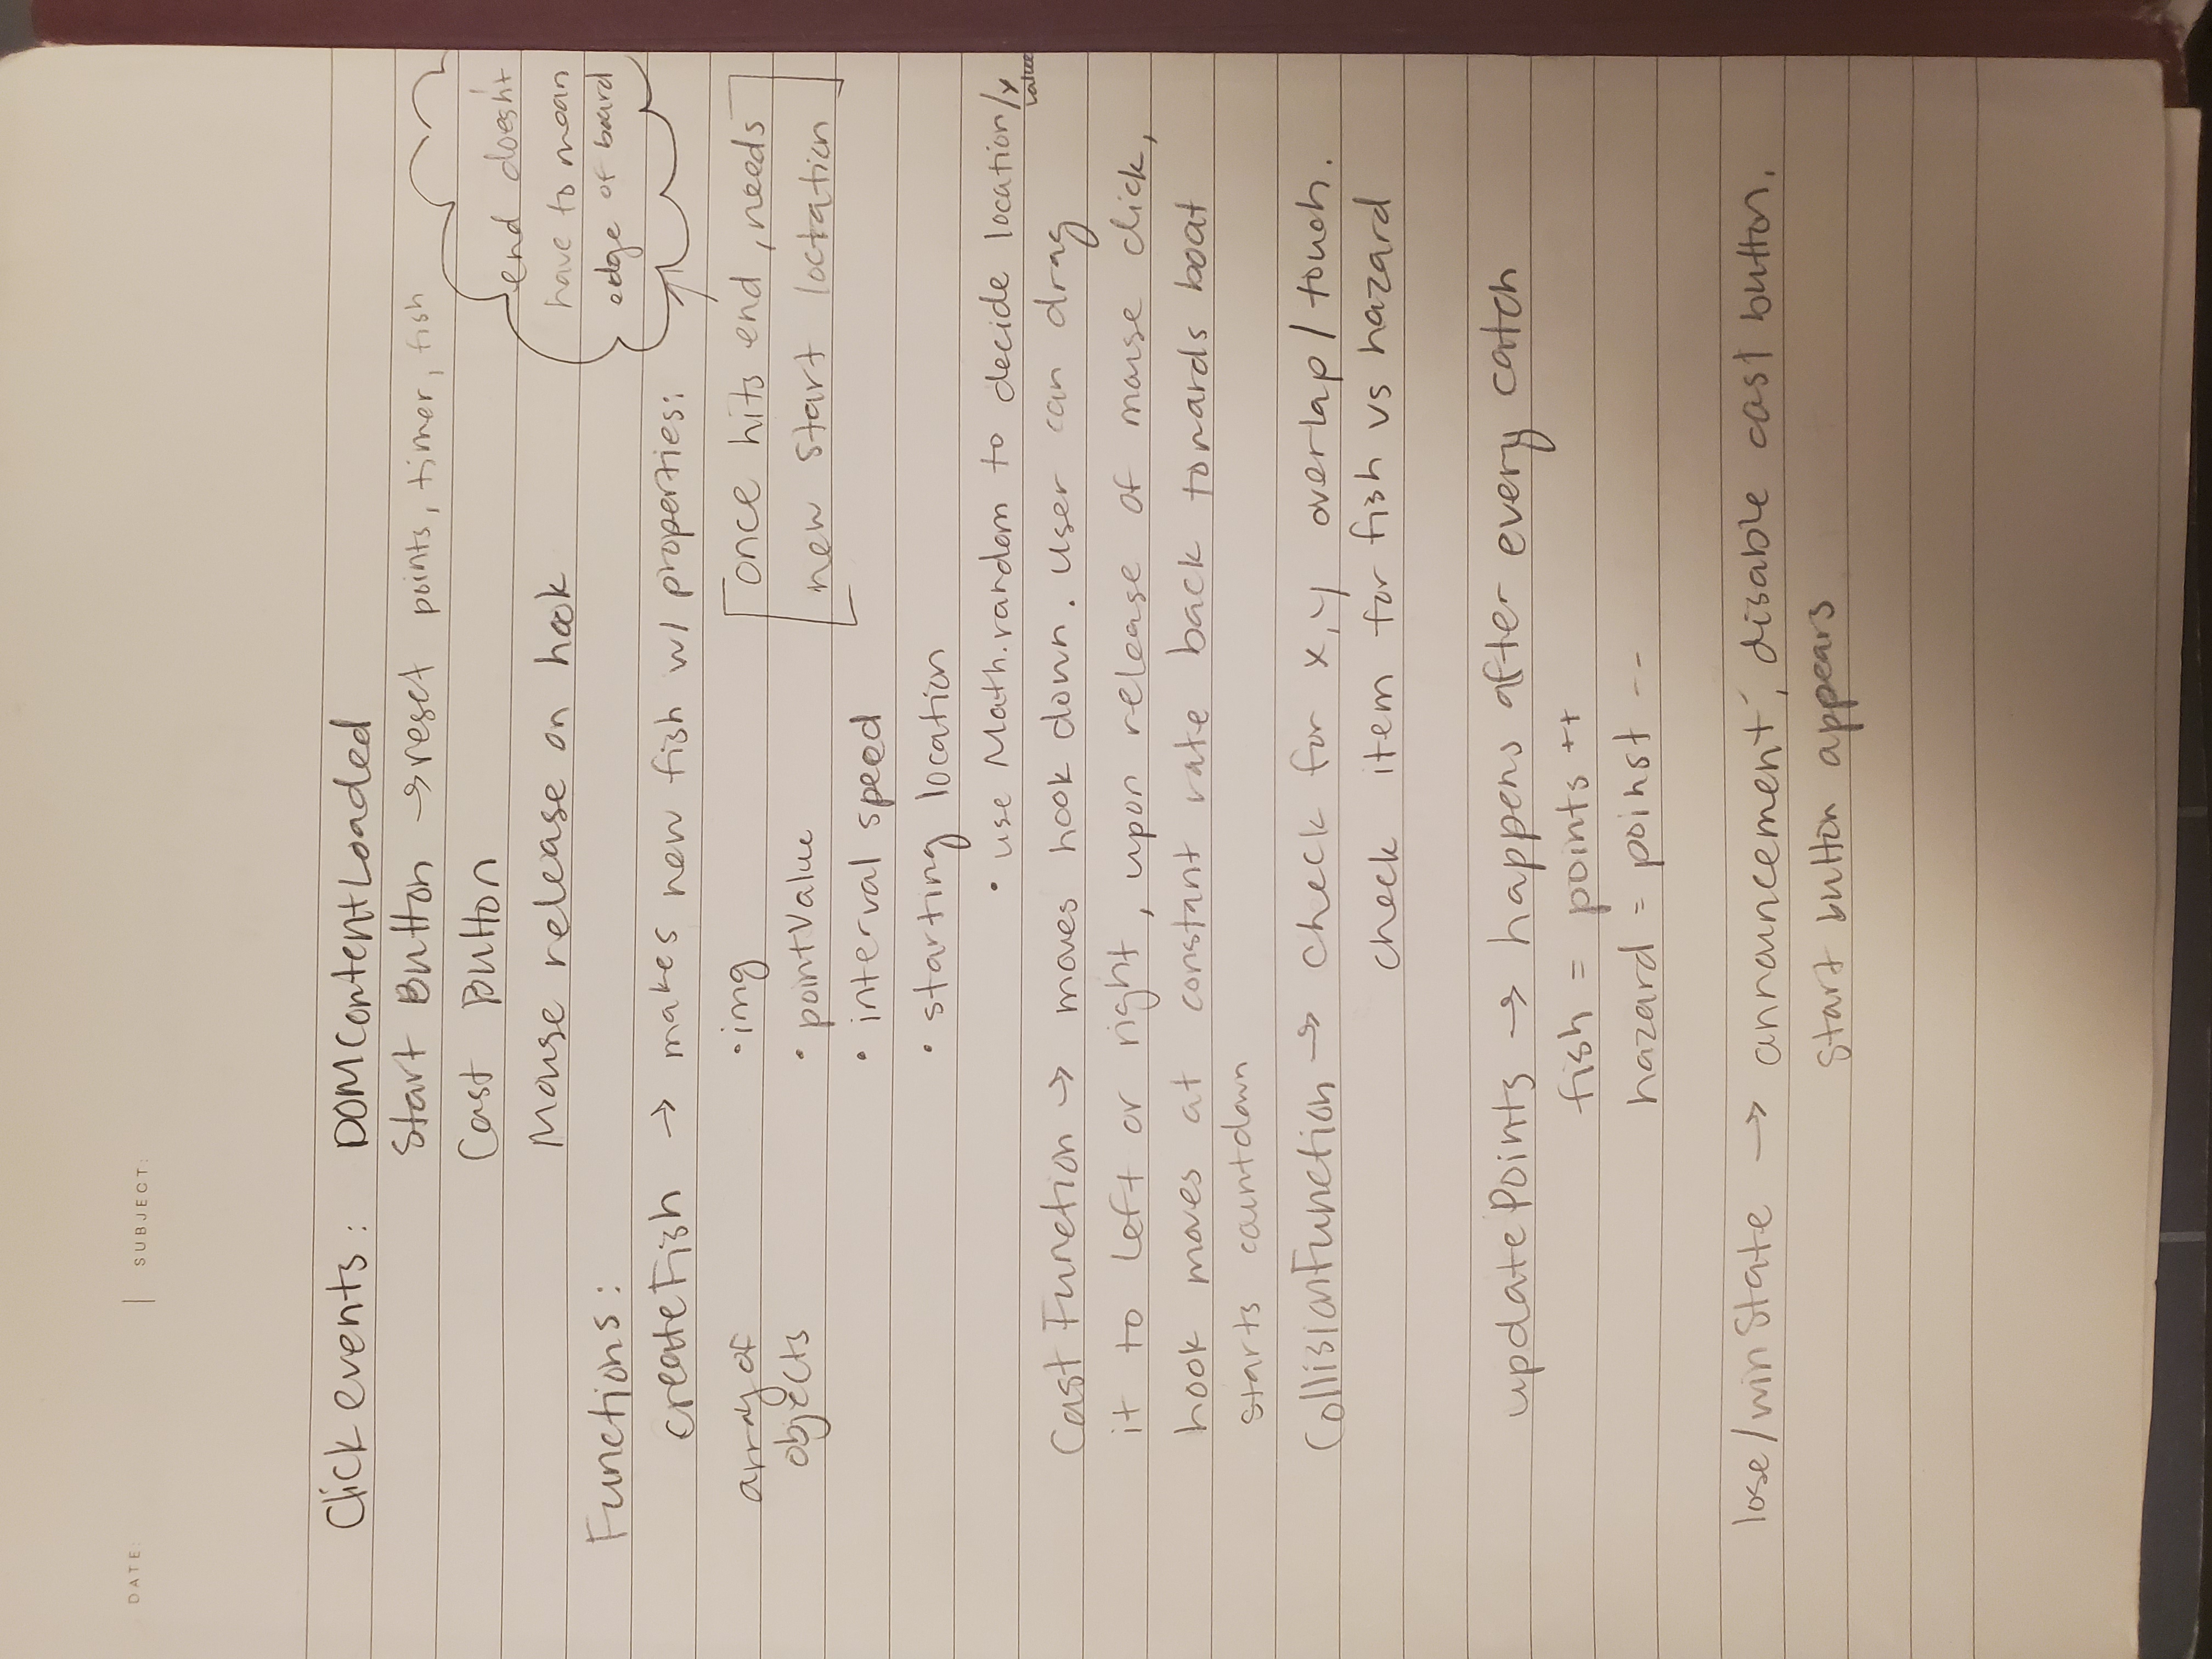 DATE: | SUBJECT:
Click events: DOMContentLoaded
Start Button → reset points, timer, fish
Cast Button
Mouse release on hook
end doesn't
have to mean
edge of board
Functions:
createFish → makes new fish w/ properties:
array of
objects
• img
• pointValue
• interval speed
• starting location
• use Math.random to decide location/y
value
once hits end, needs
new start loctation
Cast Function → moves hook down. User can drag
it to left or right, upon release of mouse click,
hook moves at constant rate back towards boat
starts countdown
CollisionFunction → check for x,y overlap/touch.
check item for fish vs hazard
updatePoints → happens after every catch
fish = points ++
hazard = poinst --
lose/winState → announcement, disable cast button.
start button appears